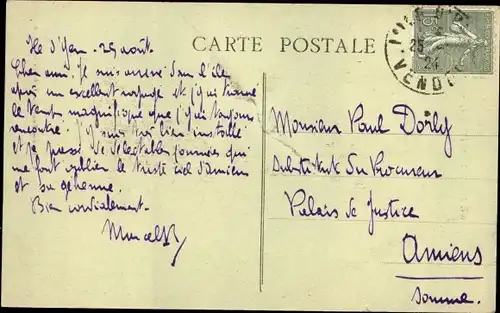 Ile d'Yeu - 25 août.
Cher ami. Je suis arrivé dans l'île
après un excellent voyage et j'y ai trouvé
le temps magnifique que j'y ai toujours
rencontré. J'y suis très bien installé
et je passe de délectables journées qui
me font oublier le triste ciel d'Amiens
et sa géhenne.
Bien cordialement.
Marcel
CARTE POSTALE
25
24
VENDÉE
15
Monsieur Paul Dorly
Substitut du Procureur
Palais de Justice
Amiens
Somme.